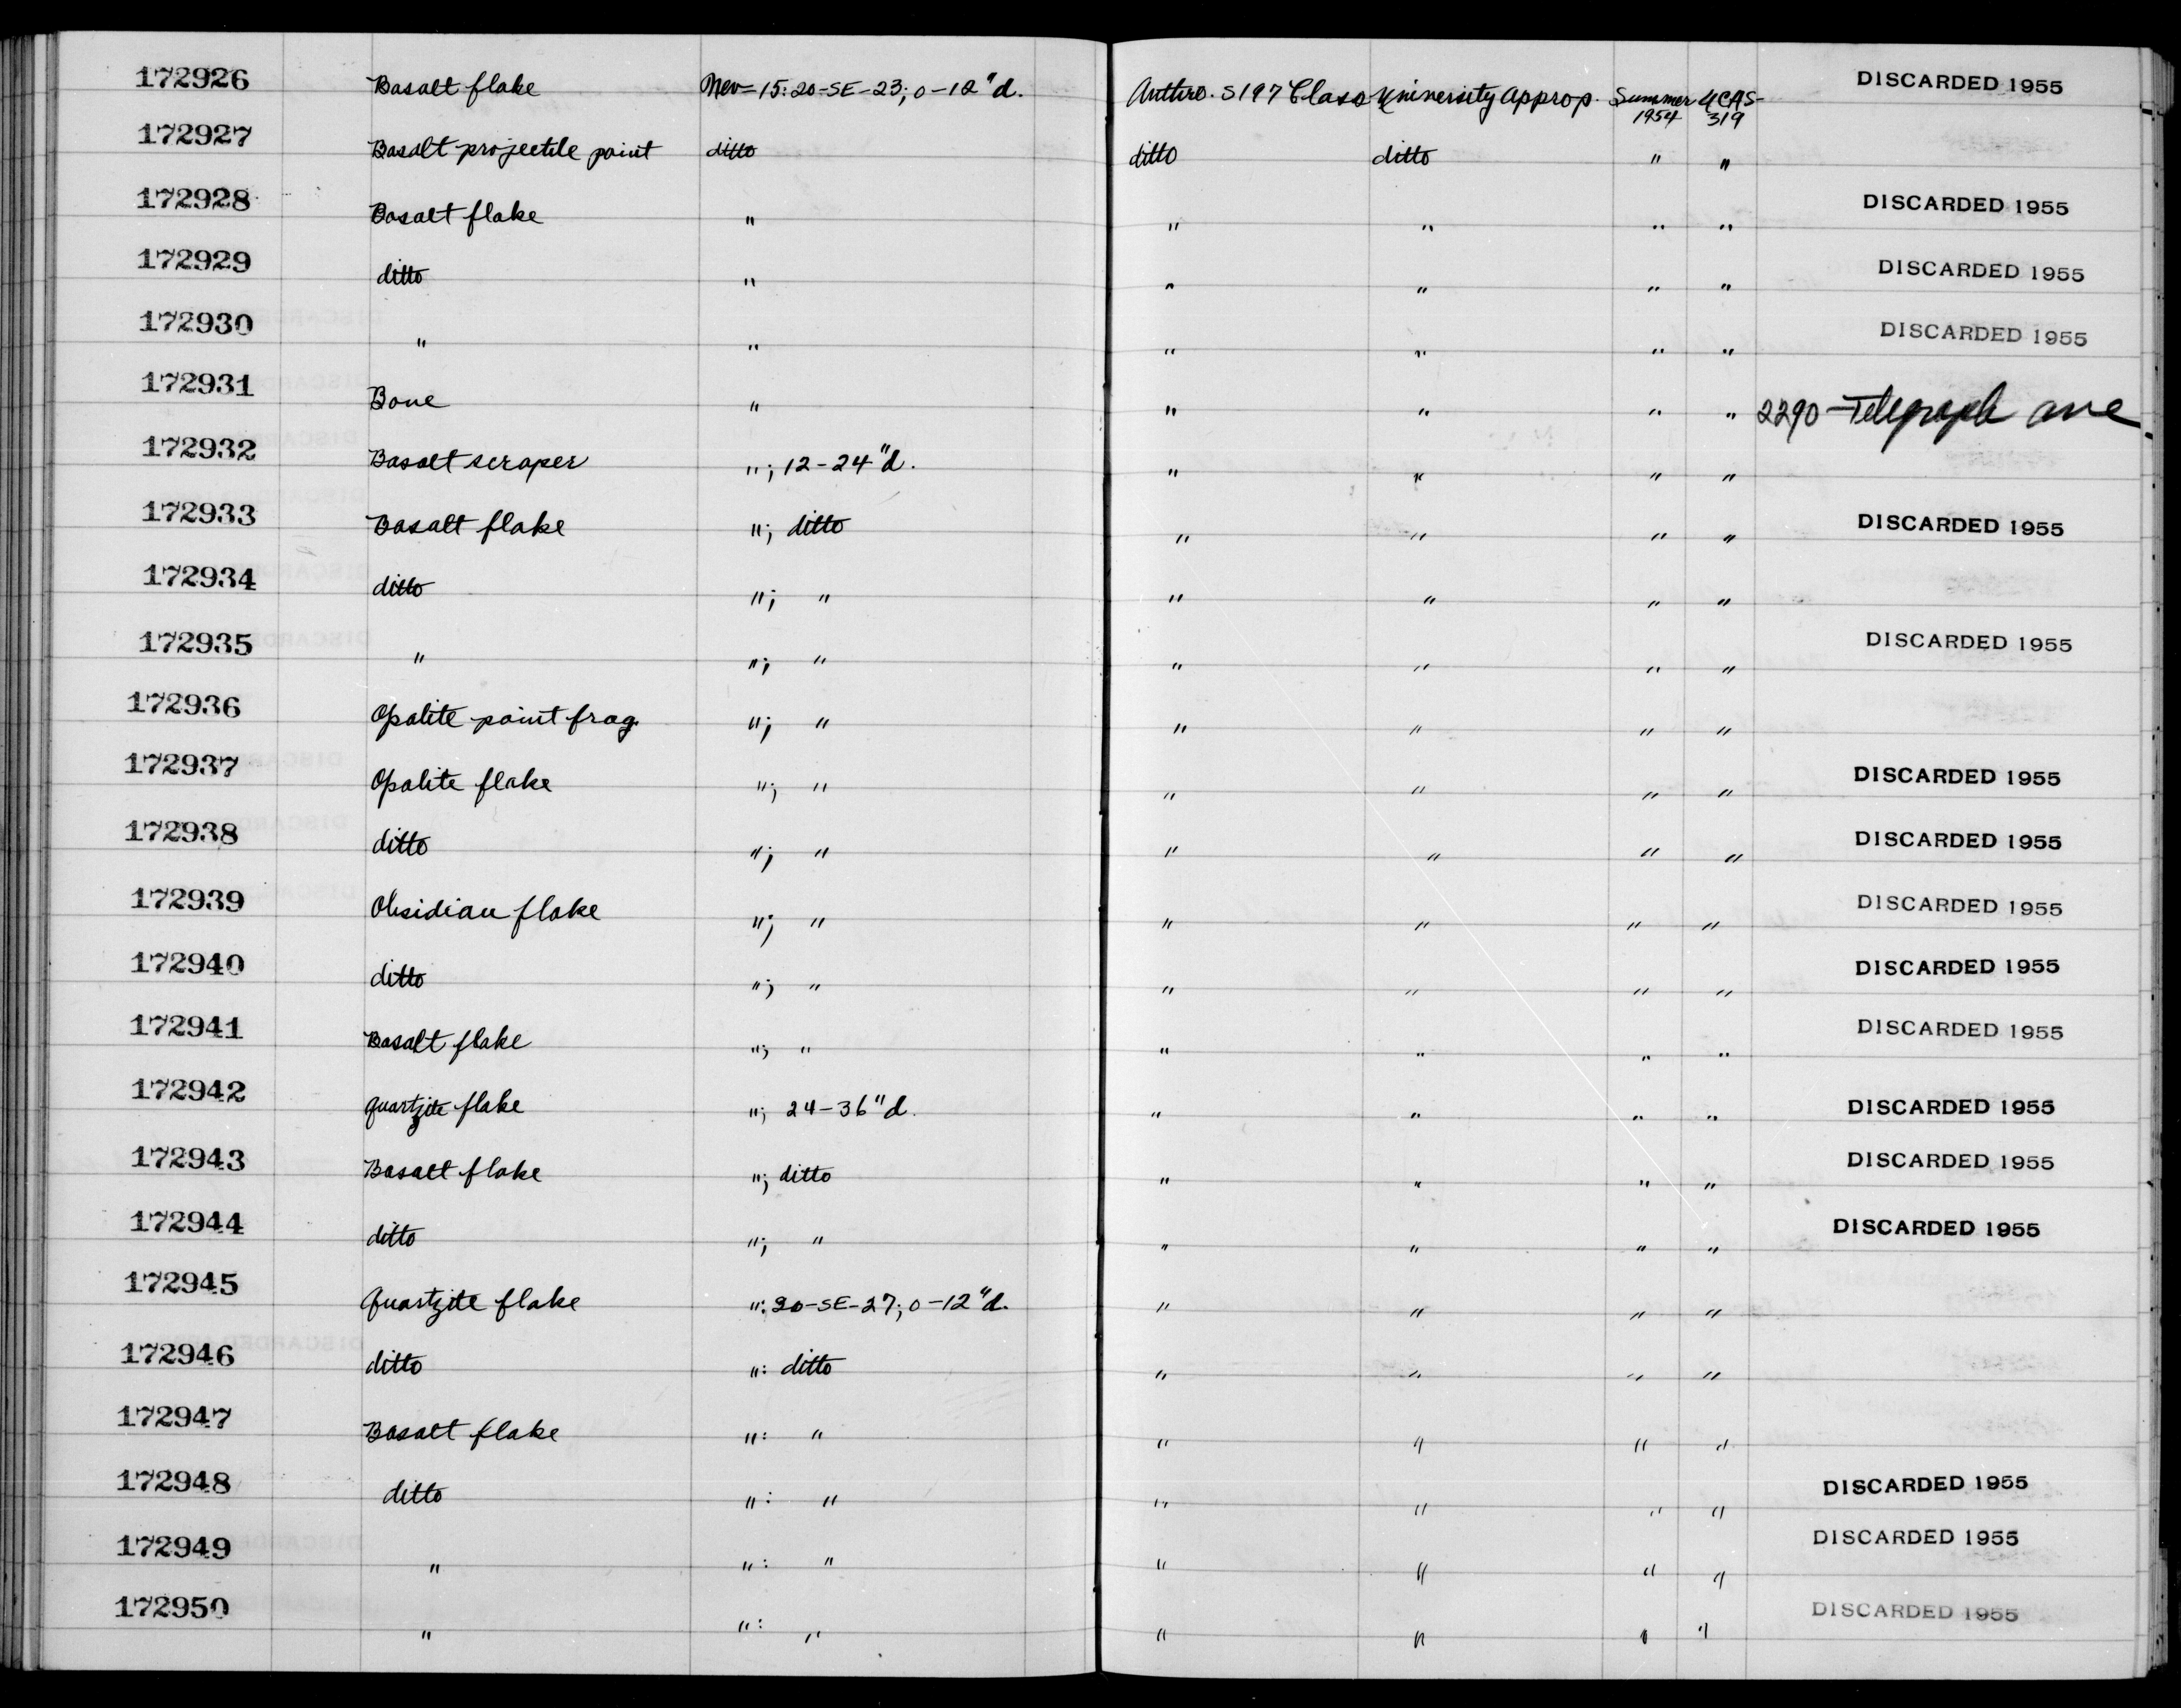 172926 Basalt flake Nev-15:20-SE-23; 0-12"d. Anthro. S197 Class University Approp. Summer 1954 UCAS-319 DISCARDED 1955
172927 Basalt projectile point ditto ditto ditto " "
172928 Basalt flake " " " " " DISCARDED 1955
172929 ditto " " " " " DISCARDED 1955
172930 " " " " " " DISCARDED 1955
172931 Bone " " " " " 2290 - Telegraph ave
172932 Basalt scraper "; 12-24"d. " " " "
172933 Basalt flake "; ditto " " " " DISCARDED 1955
172934 ditto "; " " " " "
172935 " "; " " " " " DISCARDED 1955
172936 Opalite point frag. "; " " " " "
172937 Opalite flake "; " " " " " DISCARDED 1955
172938 ditto "; " " " " " DISCARDED 1955
172939 Obsidian flake "; " " " " " DISCARDED 1955
172940 ditto "; " " " " " DISCARDED 1955
172941 Basalt flake "; " " " " " DISCARDED 1955
172942 quartzite flake "; 24-36"d. " " " " DISCARDED 1955
172943 Basalt flake "; ditto " " " " DISCARDED 1955
172944 ditto "; " " " " " DISCARDED 1955
172945 Quartzite flake ":20-SE-27; 0-12"d. " " " "
172946 ditto ": ditto " " " "
172947 Basalt flake ": " " " " "
172948 ditto ": " " " " " DISCARDED 1955
172949 " ": " " " " " DISCARDED 1955
172950 " ": " " " " " DISCARDED 1955